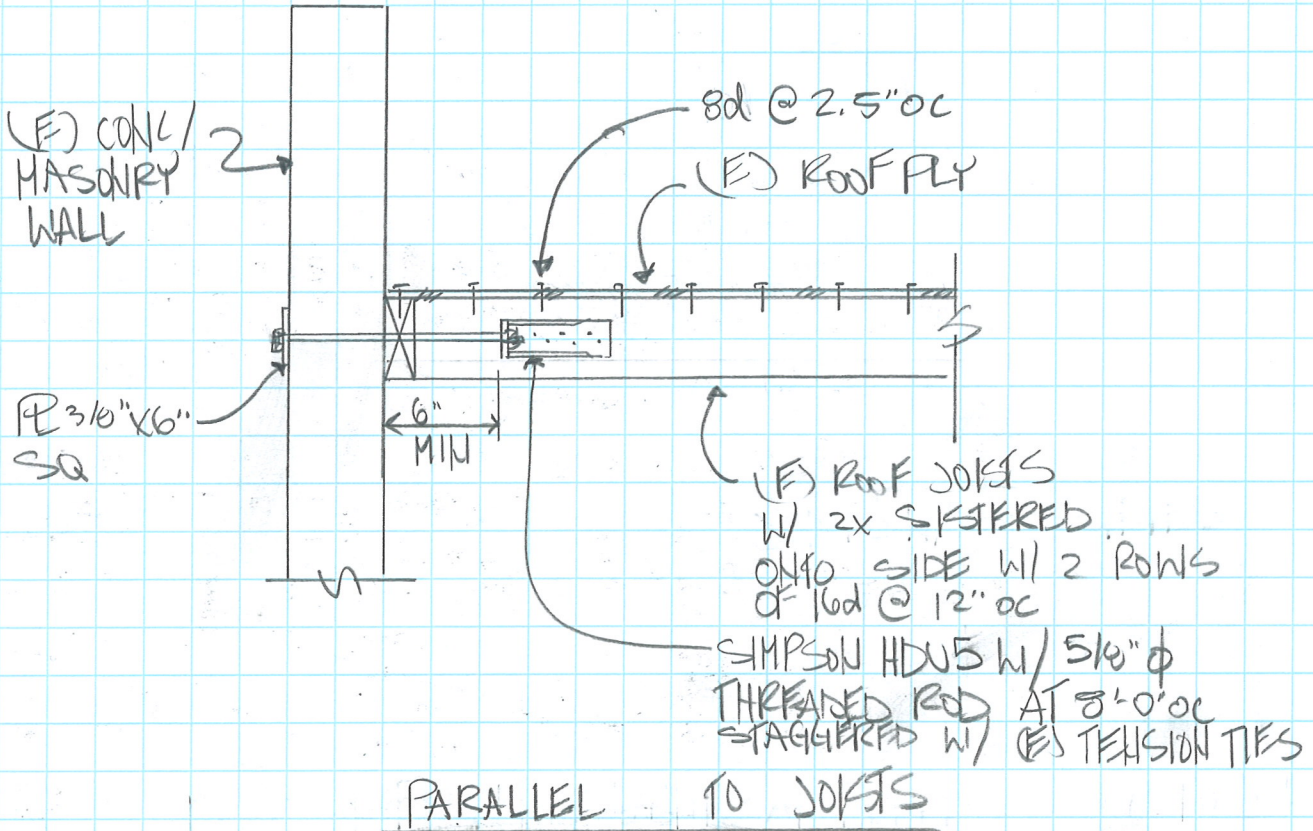 8d @ 2.5" OC
(E) ROOF PLY
(E) CONC/
MASONRY
WALL
PL 3/8" X 6"
SQ
6"
MIN
(E) ROOF JOISTS
W/ 2X SISTERED
ONTO SIDE W/ 2 ROWS
OF 16d @ 12" OC
SIMPSON HDU5 W/ 5/8" ϕ
THREADED ROD AT 8'-0" OC
STAGGERED W/ (E) TENSION TIES
PARALLEL TO JOISTS